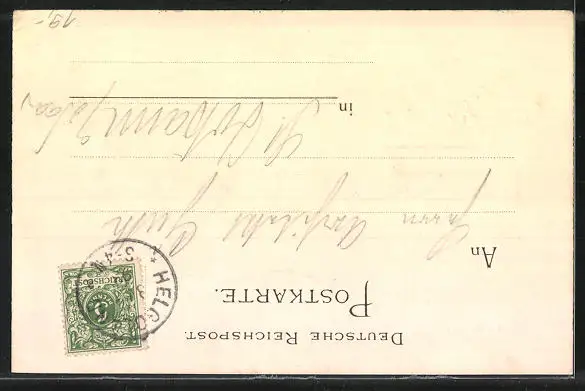 DEUTSCHE REICHSPOST.
POSTKARTE.
REICHSPOST
5
HELGO
An
Herrn Architekt Guth
in
St. Johann/Saar
19,-